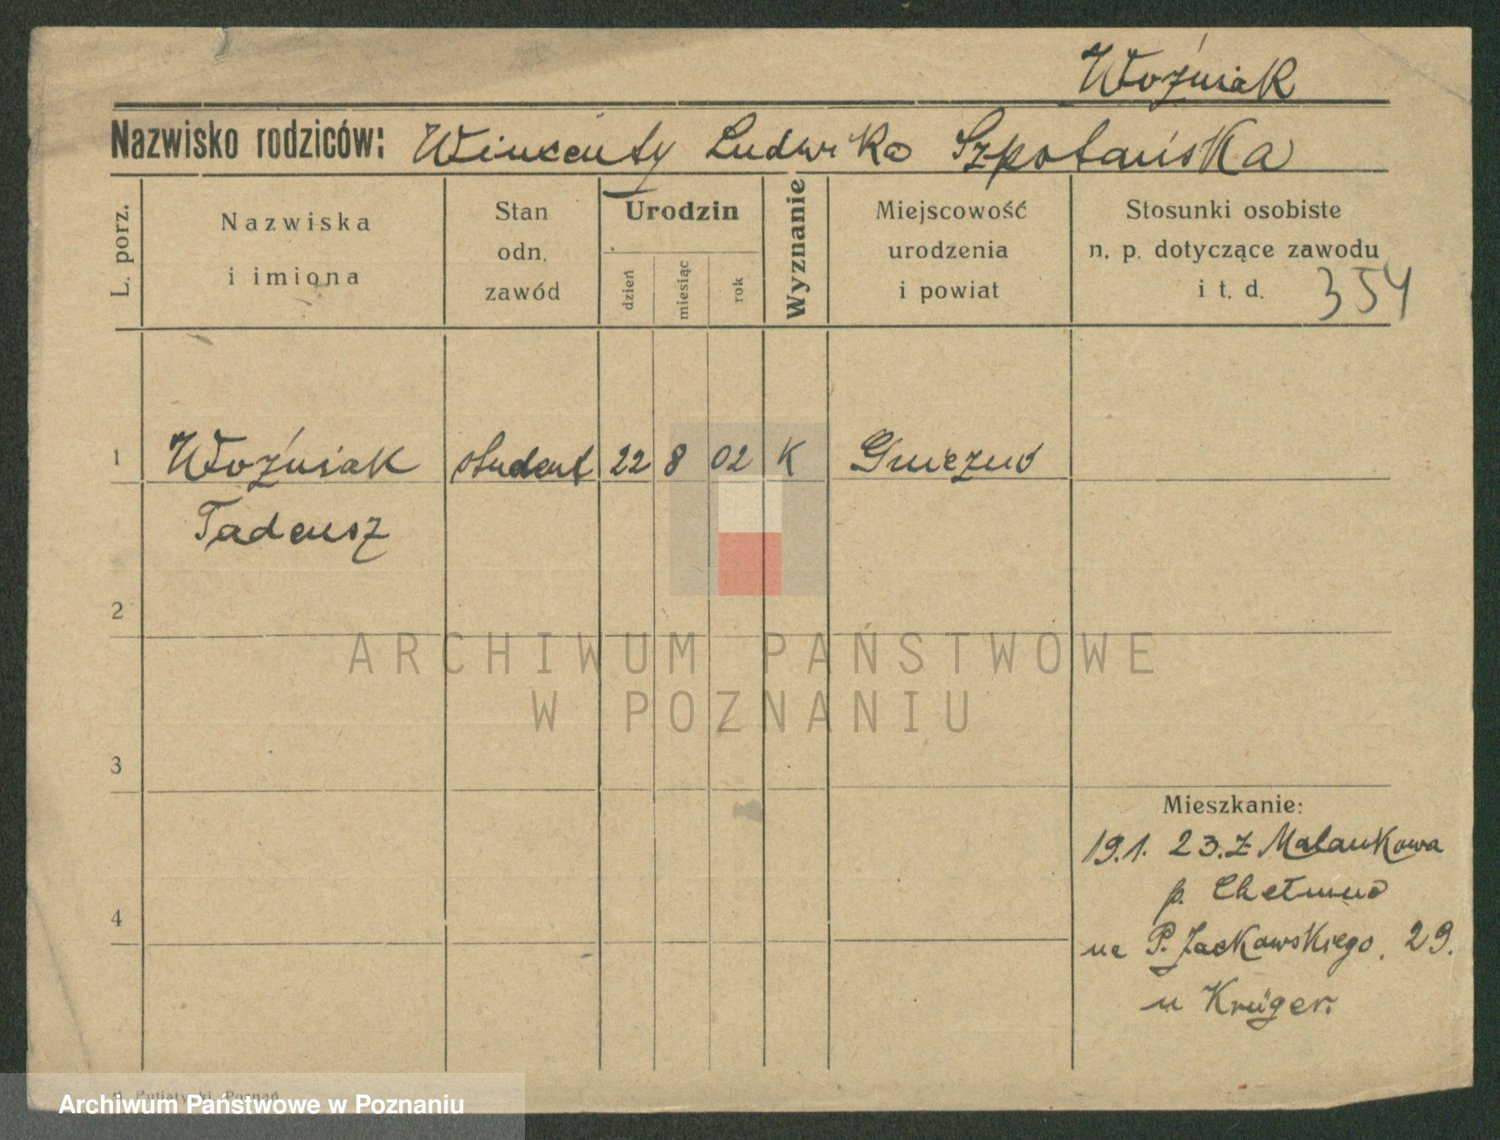 Woźniak
Nazwisko rodziców: Wincenty Ludwika Szpotańska
L. porz.
Nazwiska
i imiona
Stan
odn.
zawód
Urodzin
dzień
miesiąc
rok
Wyznanie
Miejscowość
urodzenia
i powiat
Stosunki osobiste
n. p. dotyczące zawodu
i t. d. 354
1 Woźniak student 22 8 02 K Gniezno
Tadeusz
2
ARCHIWUM PAŃSTWOWE
W POZNANIU
3
Mieszkanie:
19.1. 23. z Malankowa
p. Chełmno
4
na P. Jackowskiego, 29.
u Krüger.
Poznań
Archiwum Państwowe w Poznaniu